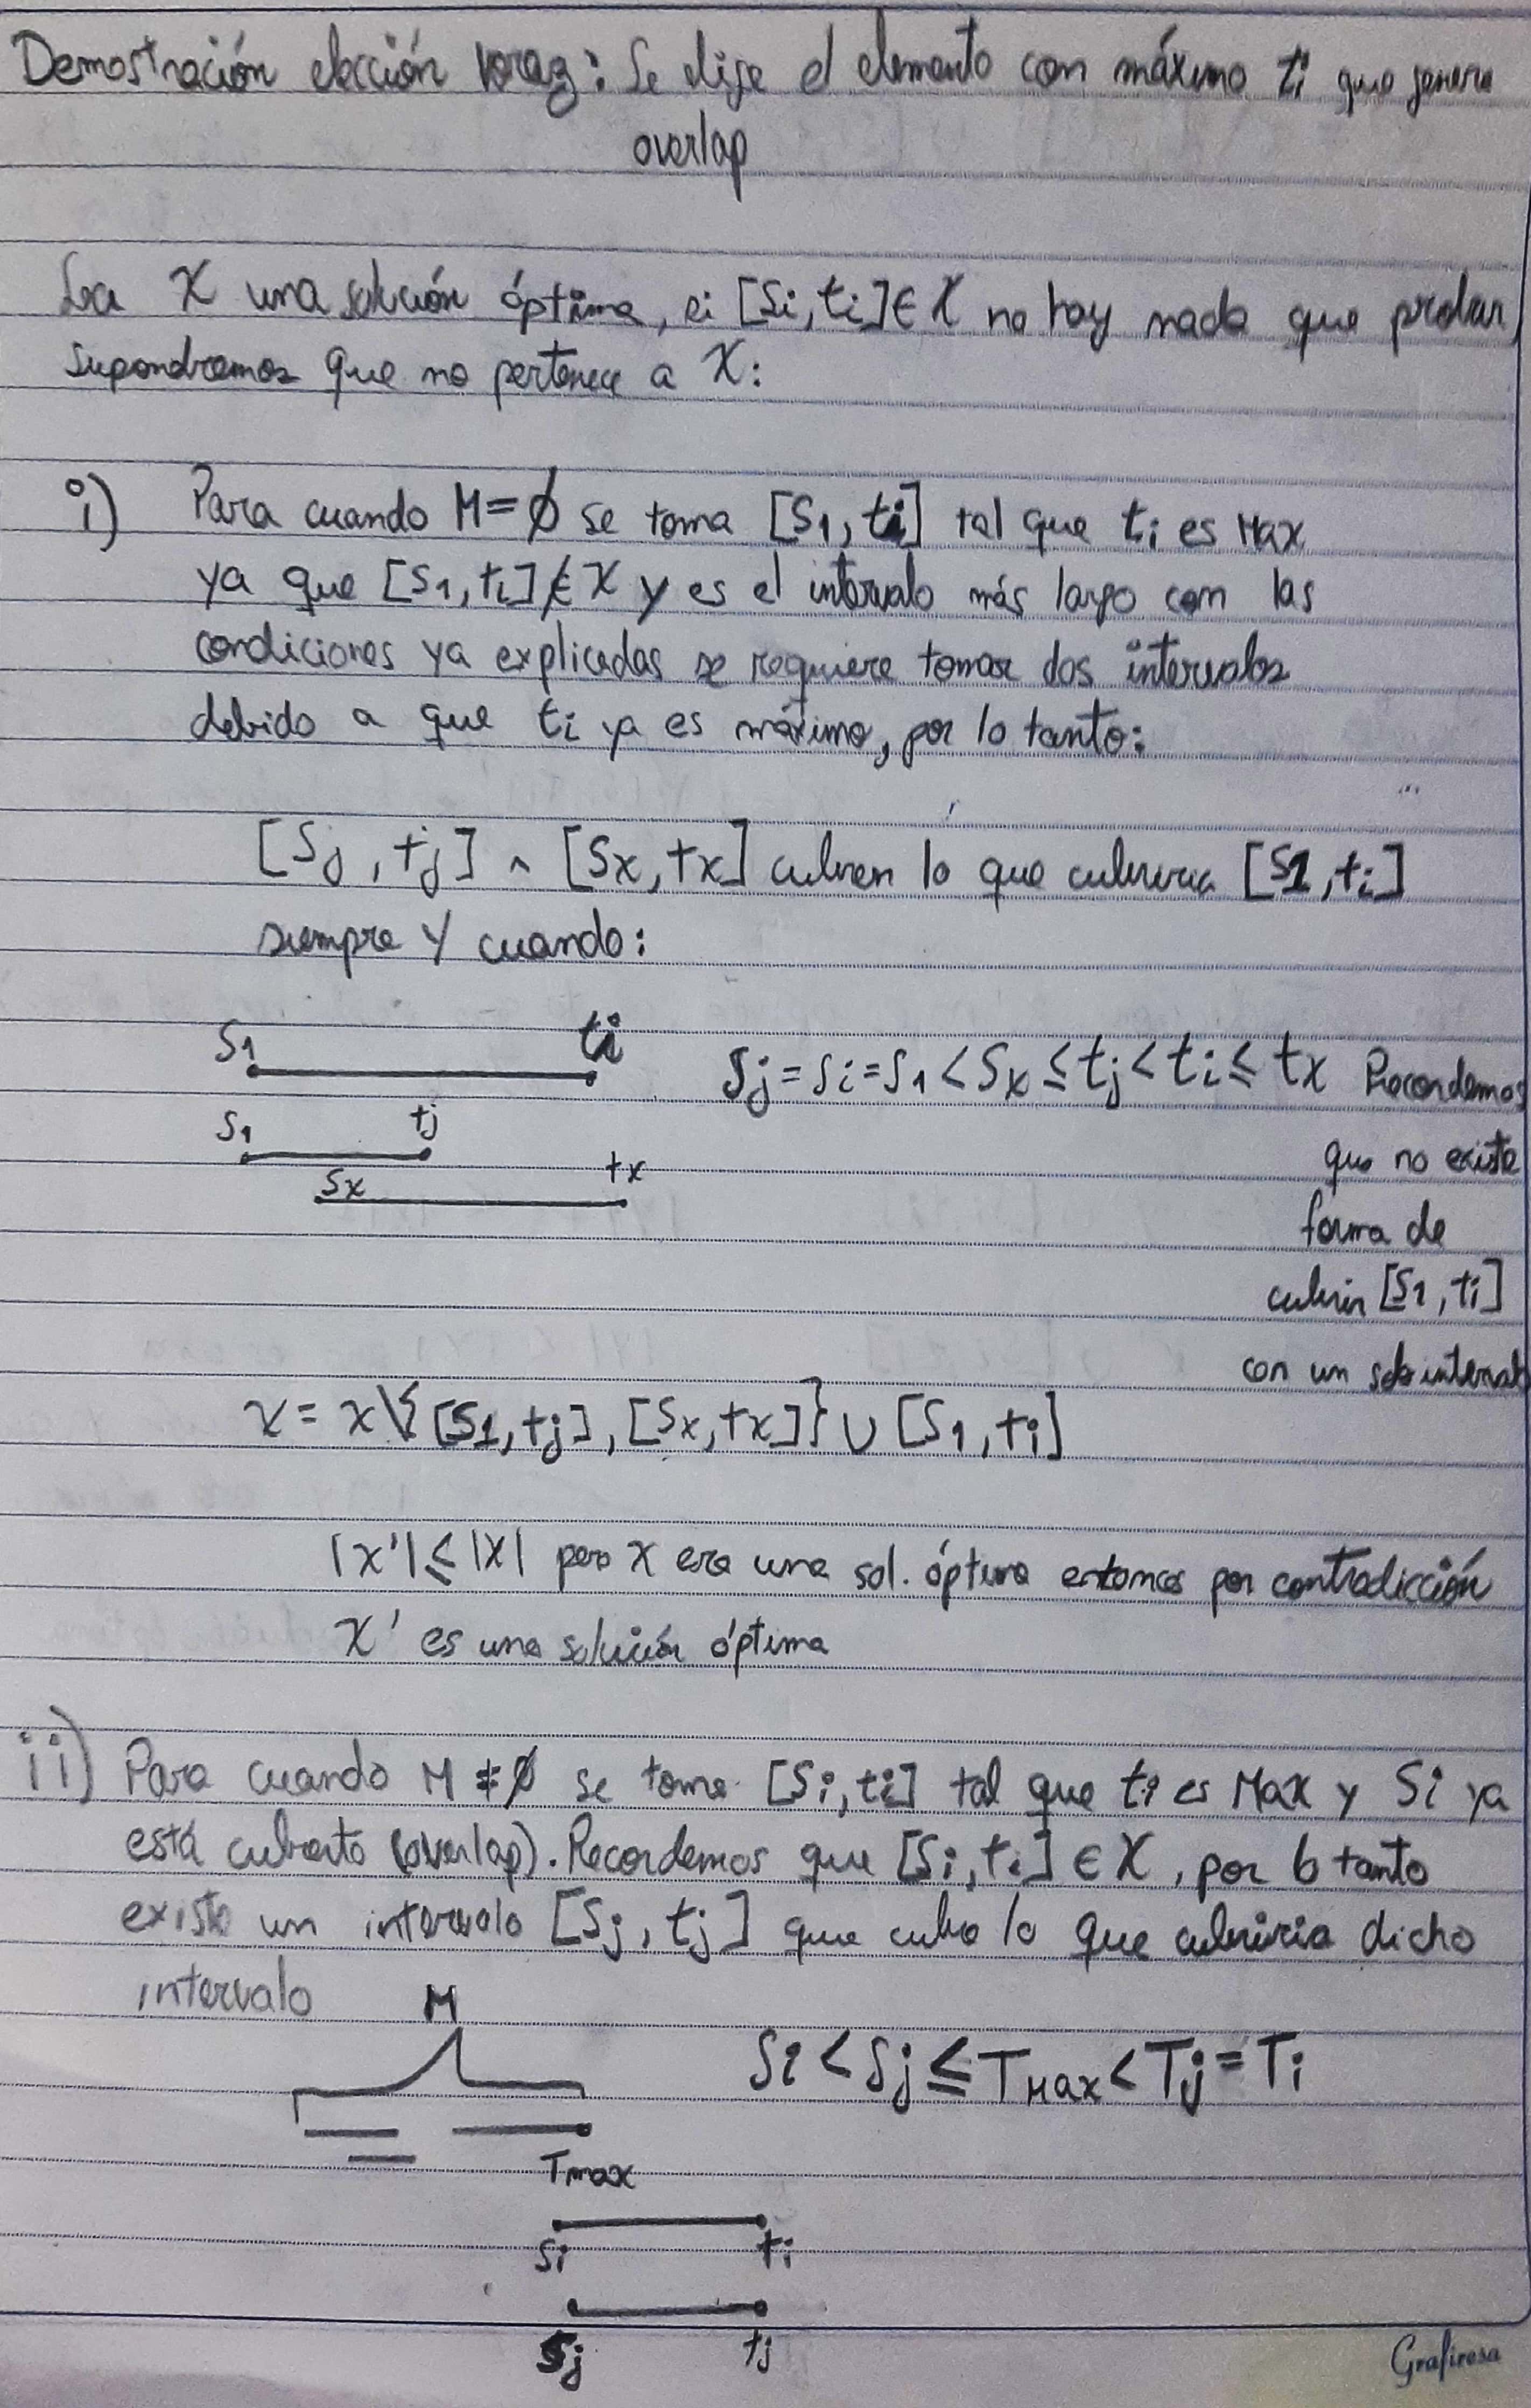 Demostración elección voraz: Se elige el elemento con máximo ti que genera
overlap
Sea X una solución óptima, si [Si, ti] ∈ X no hay nada que probar,
supondremos que no pertenece a X:
i) Para cuando M = ∅ se toma [S1, ti] tal que ti es Max
ya que [S1, ti] ∉ X y es el intervalo más largo con las
condiciones ya explicadas se requiere tomar dos intervalos
debido a que ti ya es máximo, por lo tanto:
[Sj, tj] ^ [Sx, tx] cubren lo que cubriría [S1, ti]
siempre y cuando:
S1 ti
Sj = Si = S1 < Sx ≤ tj < ti ≤ tx Recordemos
S1 tj
que no existe
Sx tx
forma de
cubrir [S1, ti]
con un solo intervalo
X = X \ { [S1, tj], [Sx, tx] } ∪ [S1, ti]
|X'| ≤ |X| pero X era una sol. óptima entonces por contradicción
X' es una solución óptima
ii) Para cuando M ≠ ∅ se toma [Si, ti] tal que ti es Max y Si ya
está cubierto (overlap). Recordemos que [Si, ti] ∈ X, por lo tanto
existe un intervalo [Sj, tj] que cubre lo que cubriría dicho
intervalo
M
Si < Sj ≤ TMax < Tj = Ti
Tmax
Si ti
Sj tj
Grafiresa